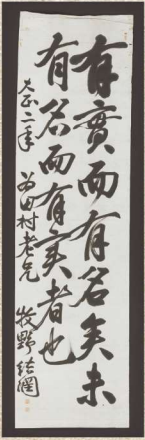 有實而有名矣未
有名而有实者也
大正二年 為田村老兄 牧野